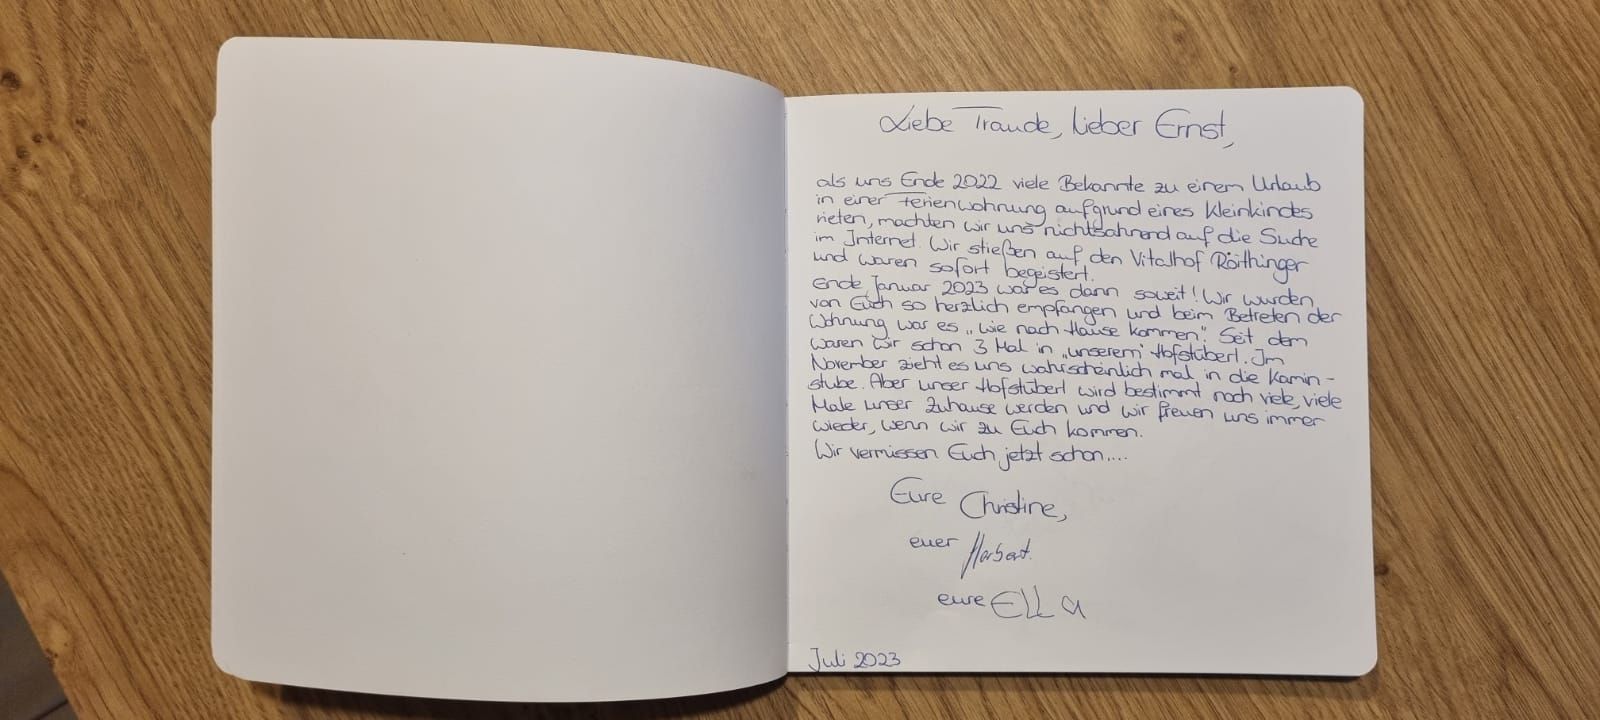 Liebe Traude, lieber Ernst,
als uns Ende 2022 viele Bekannte zu einem Urlaub
in einer Ferienwohnung aufgrund eines Kleinkindes
rieten, machten wir uns nichtsahnend auf die Suche
im Internet. Wir stießen auf den Vitalhof Röithinger
und waren sofort begeistert.
Ende Januar 2023 war es dann soweit! Wir wurden
von Euch so herzlich empfangen und beim Betreten der
Wohnung war es „wie nach Hause kommen". Seit dem
waren wir schon 3 Mal in „unserem" Hofstüberl. Im
November zieht es uns wahrscheinlich mal in die Kamin-
stube. Aber unser Hofstüberl wird bestimmt noch viele, viele
Male unser Zuhause werden und wir freuen uns immer
wieder, wenn wir zu Euch kommen.
Wir vermissen Euch jetzt schon....
Eure Christine,
euer Herbert.
eure ELLA
Juli 2023